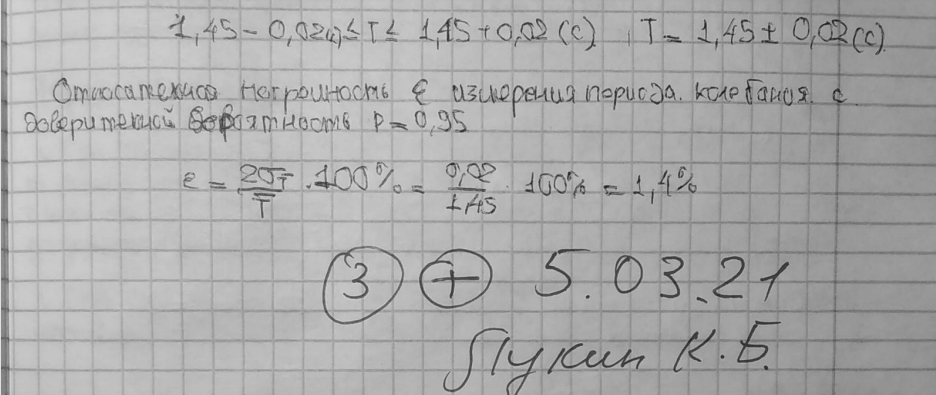 1,45 - 0,02 ≤ T ≤ 1,45 + 0,02 (с), T = 1,45 ± 0,02 (с).
Относителная погрешность ε измерения периода колебания с
доверителной вероятность P = 0,95
ε = 2σT / T̅ · 100% = 0,02 / 1,45 · 100% = 1,4%
3 + 5.03.21
Лукин К.Б.